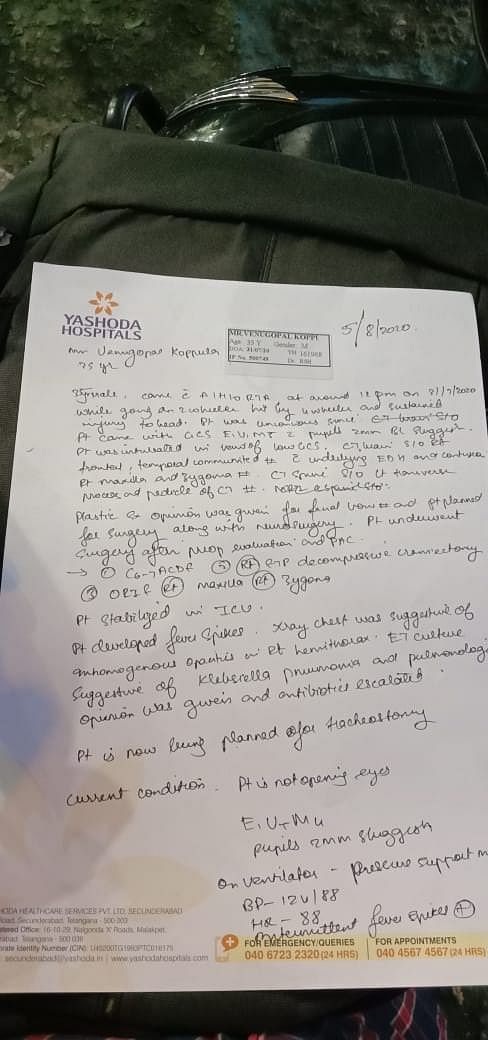 YASHODA
HOSPITALS
MR.VENUGOPAL KOPPU
Age 35 Y Gender: M
DOA: 31/07/20 YH 161968
IP No. Dr. BSH
5/8/2020.
Mr Venugopal Koppula
35 yr
35y male, came c̄ A/H/O RTA at around 12 pm on
while going on 2 wheeler hit by 4 wheeler and sustained
injury to head. Pt was unconscious since
Pt came with GCS E1V1M2 pupils 2mm BL sluggish.
Pt was intubated in view of low GCS. CT brain S/O Rt
frontal, temporal # c̄ underlying EDH and contusion
Rt maxilla and zygoma #. CT spine S/O Lt transverse
process and pedicle of C7 #.
Plastic Sx opinion was given for facial bone # and pt planned
for surgery along with neurosurgery. Pt underwent
surgery after preop evaluation and PAC.
→ ① C6-7 ACDF ② Rt FTP decompressive craniectomy
③ ORIF Rt maxilla Rt zygoma
Pt stabilized in ICU.
Pt developed fever spikes. Xray chest was suggestive of
inhomogenous opacities in Rt hemithorax. ET culture
suggestive of Klebsiella pneumonia and pulmonologi
opinion was given and antibiotics escalated.
Pt is now being planned for tracheostomy
Current condition. Pt is not opening eyes
E1VTM4
pupils 2mm sluggish
On ventilator - pressure support m
BP- 124/88
HR - 88
Intermittent fever spikes +
HODA HEALTHCARE SERVICES PVT. LTD, SECUNDERABAD
Road, Secunderabad, Telangana - 500 003
stered Office: 16-10-29, Nalgonda 'X' Roads, Malakpet,
rabad, Telangana - 500 036
orate Identity Number (CIN):
secunderabad@yashoda.in | www.yashodahospitals.com
FOR EMERGENCY/QUERIES
040 6723 2320 (24 HRS)
FOR APPOINTMENTS
040 4567 4567 (24 HRS)